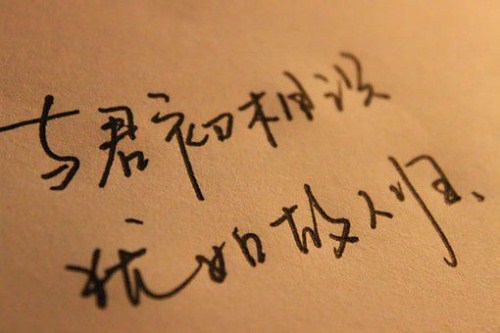 与君初相识
犹如故人归、